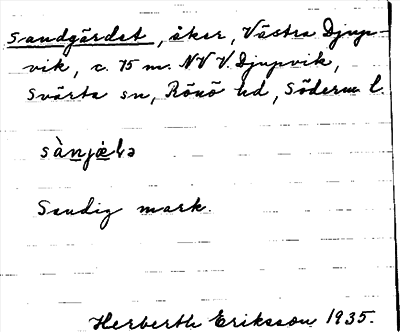 Sandgärdet, åker, Västra Djup-
vik, c. 75 m. NVV. Djupvik,
Svärta sn, Rönö hd, Söderm l.
Sandig mark.
Herberth Eriksson 1935.